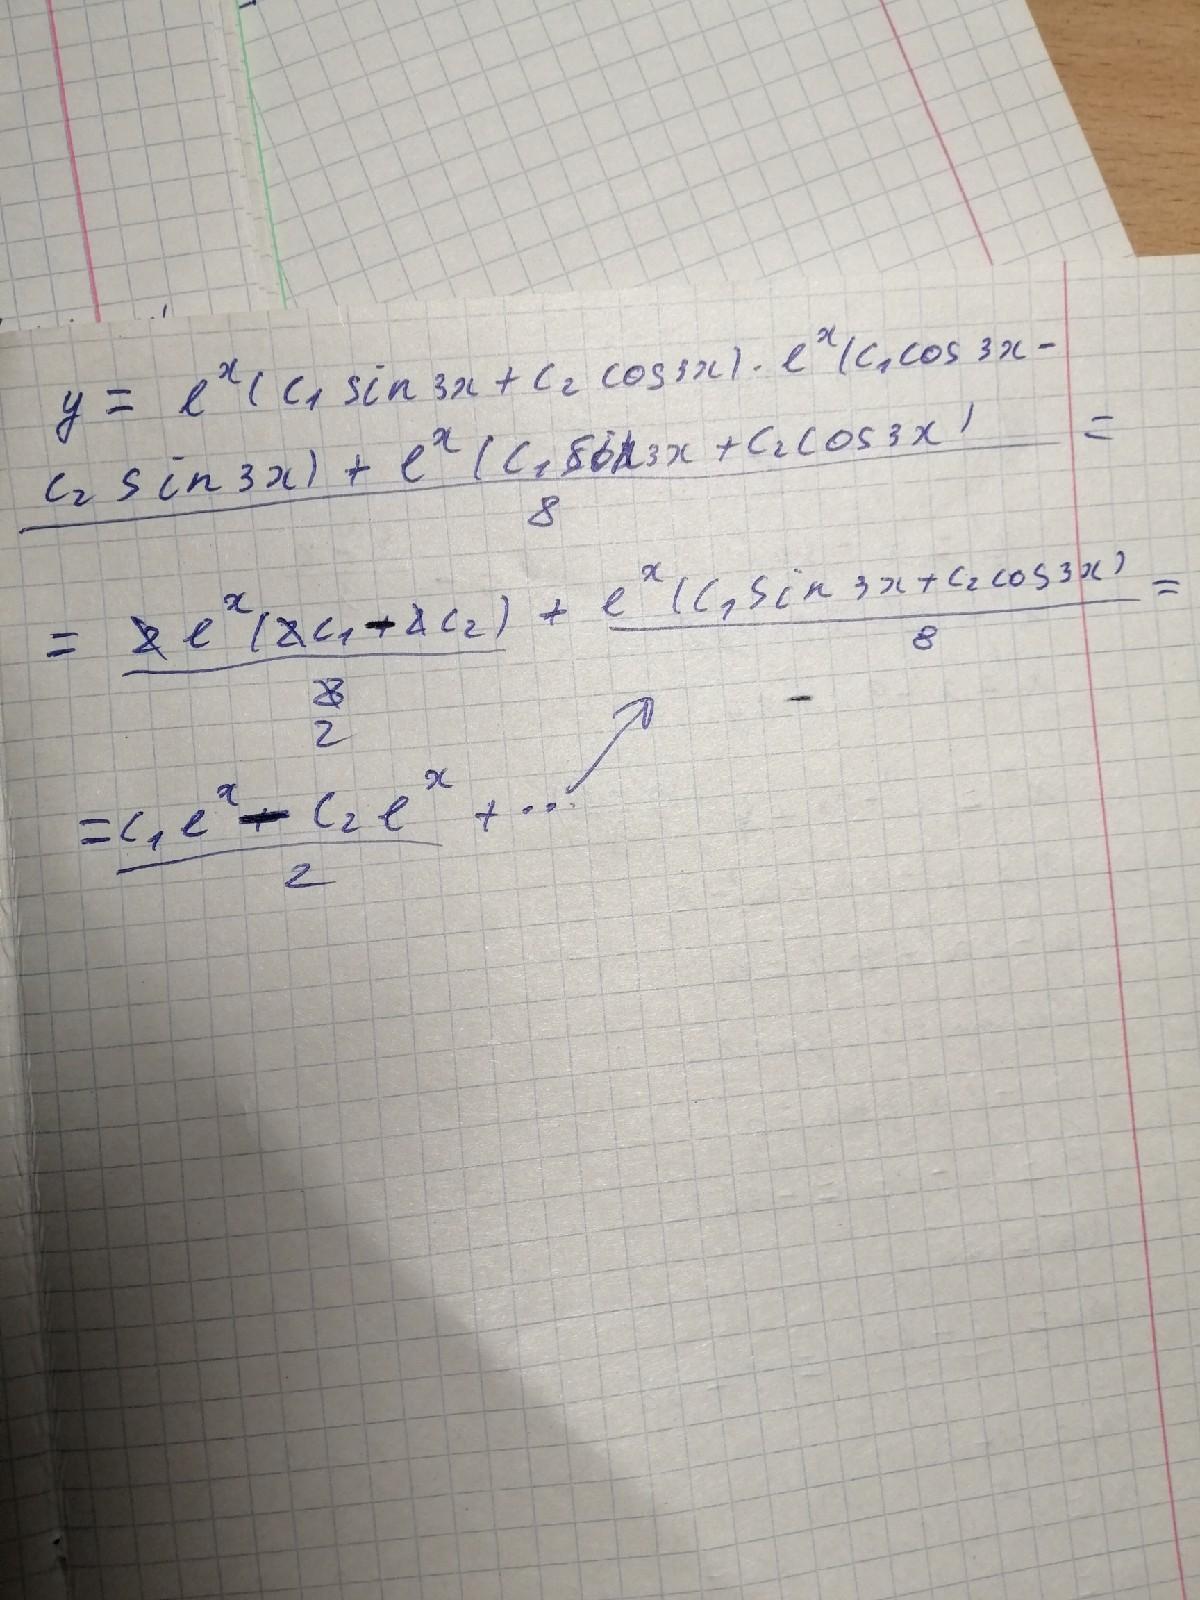 y = e^x (C₁ sin 3x + C₂ cos 3x) · e^x (C₁ cos 3x -
C₂ sin 3x) + e^x (C₁ sin 3x + C₂ cos 3x) =
8
= 2 e^x (2C₁ - 2C₂) + e^x (C₁ sin 3x + C₂ cos 3x) =
8 8
2
= C₁ e^x - C₂ e^x + ...
2